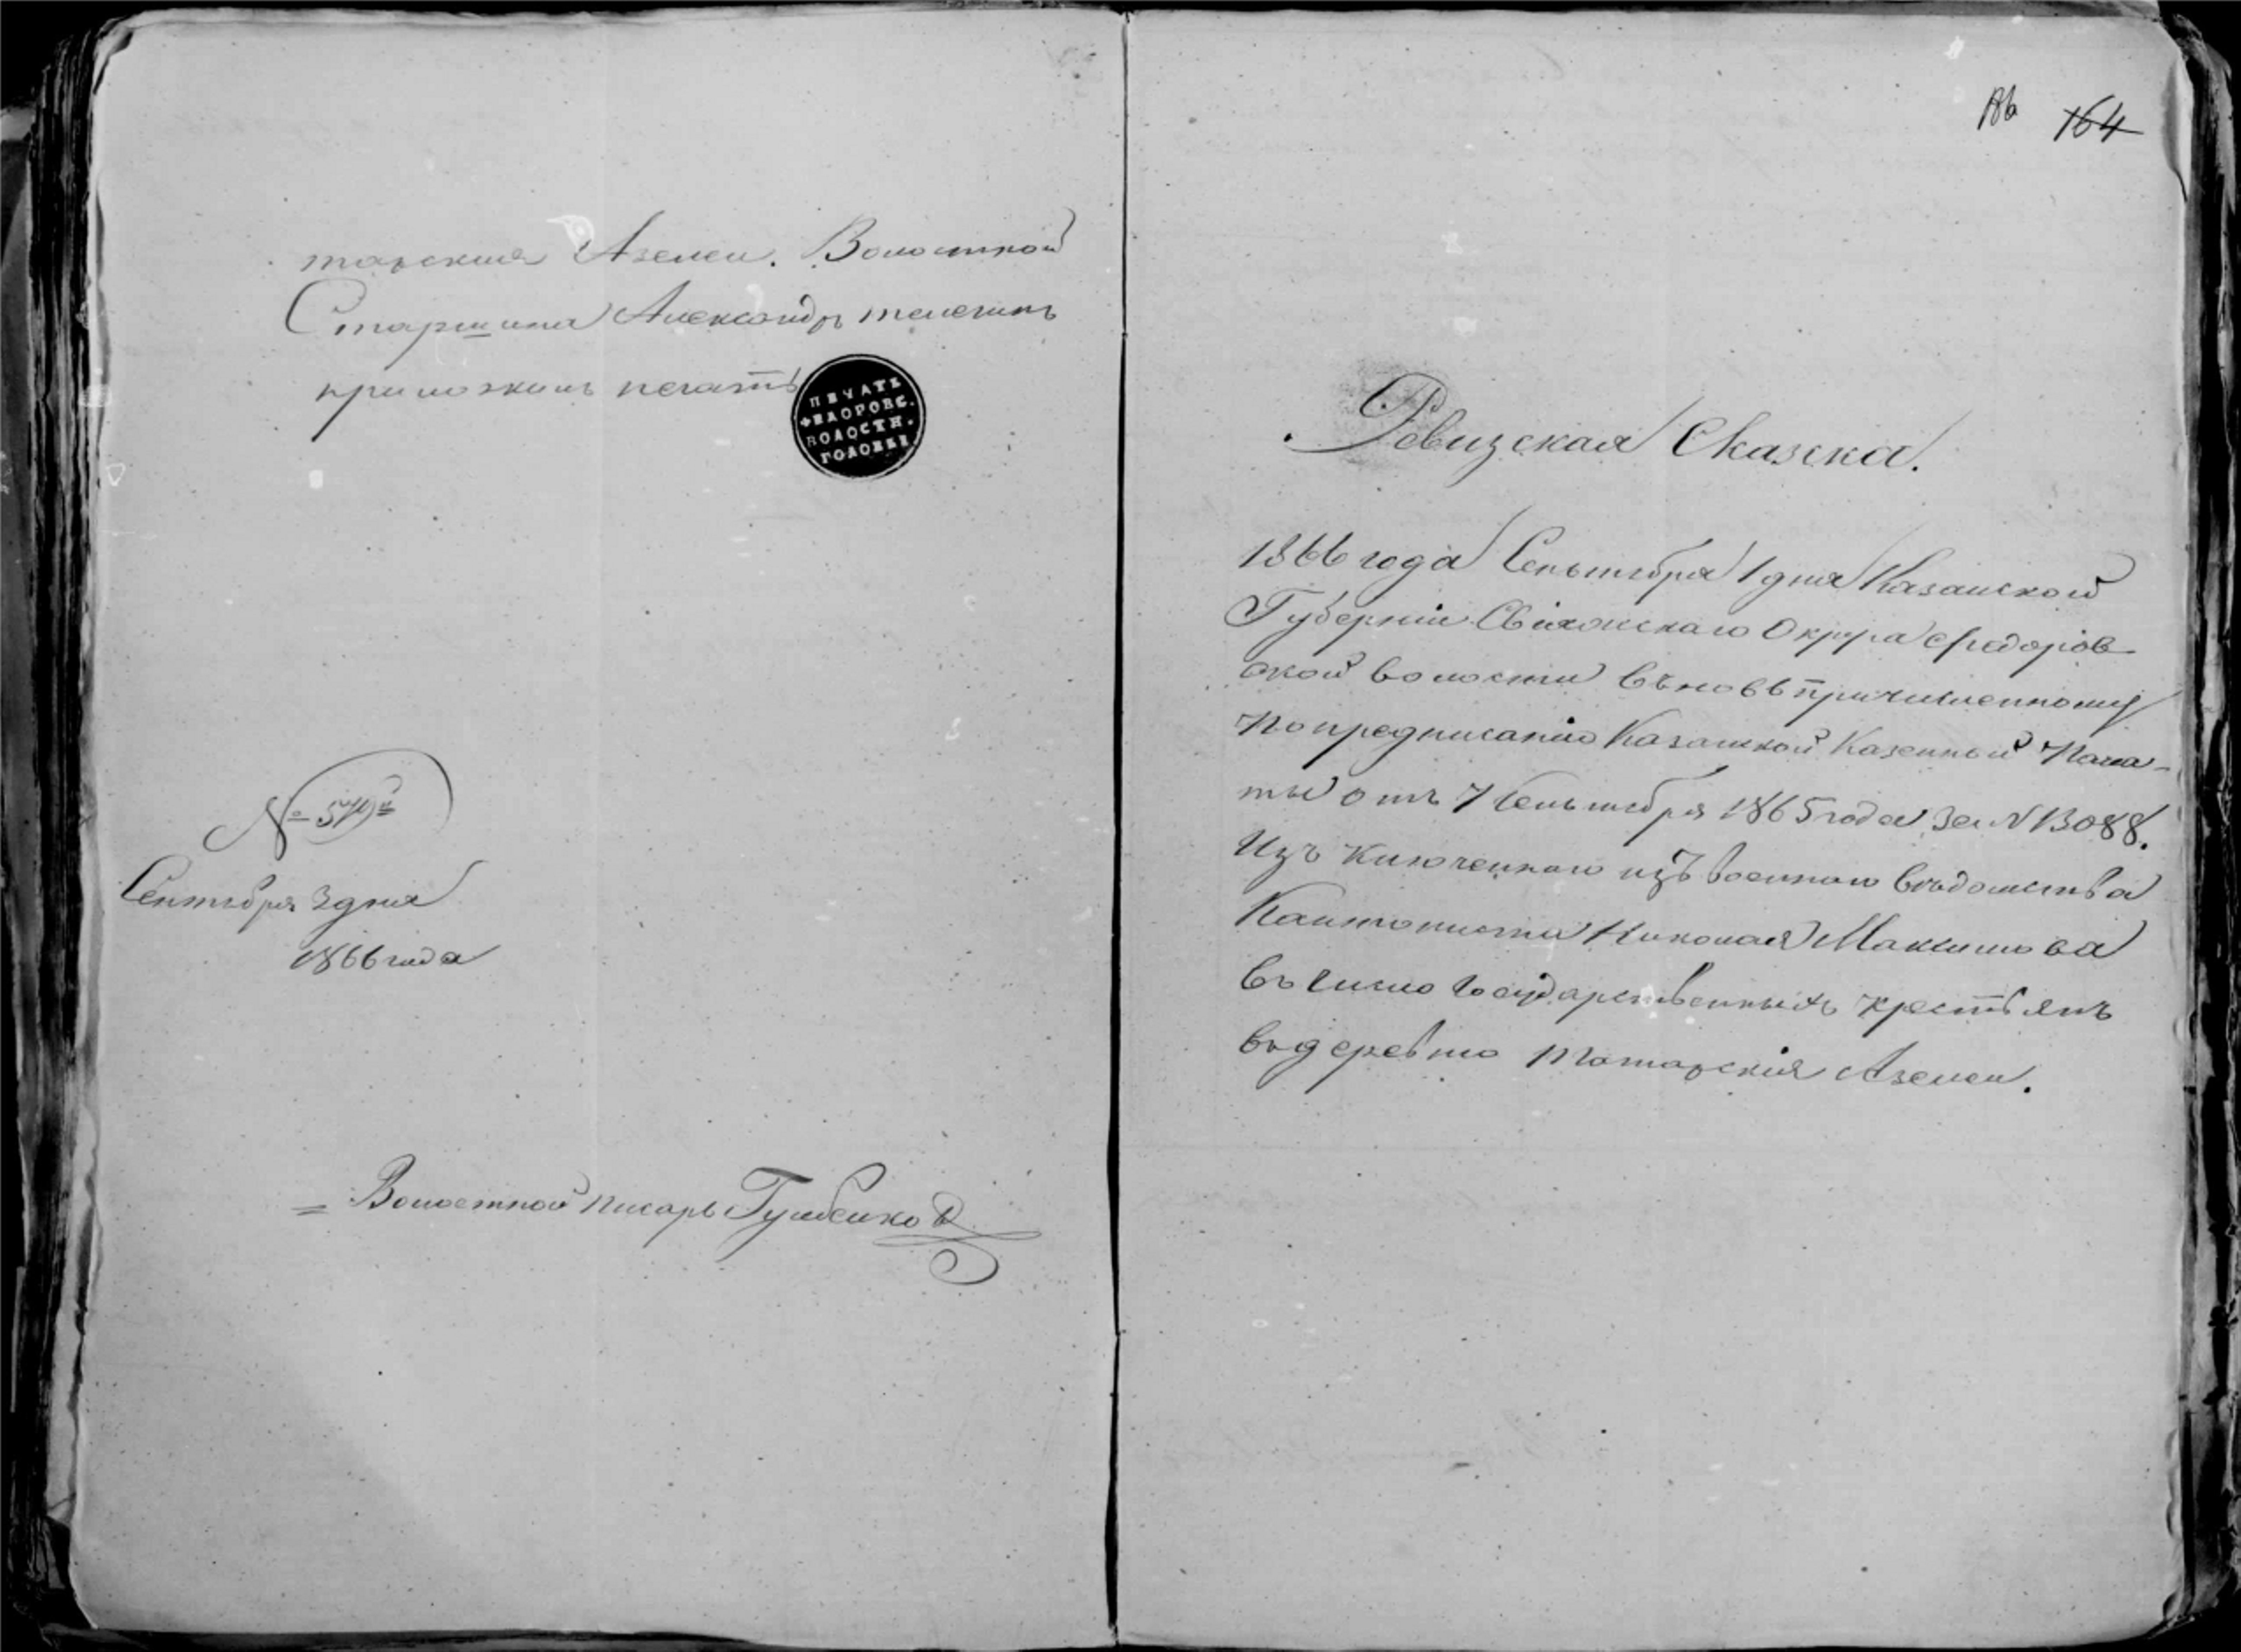 тарския Азелеи. Волостной
Старшина Александръ телегинъ
приложилъ печать
ПЕЧАТЬ
ФЕДОРОВС.
ВОЛОСТН.
ГОЛОВЫ
Сентября 3 дня
1866 года
Волостной писарь
164
Ревизская Сказска.
1866 года Сеньтября 1 дня Казанской
Губерніи Свіяжскаго Округа Федоров
ской волости вьновь причисленному
По предписанію Казанской Казенной Пала-
ты отъ 7 Сеньтября 1865 года За N 13088.
Изъ Ключеннаго изъ военнаго вѣдомства
Кантониста Николая Максимова
въ число Государственныхъ крестьянъ
въ деревню Татарскія Азелеи.